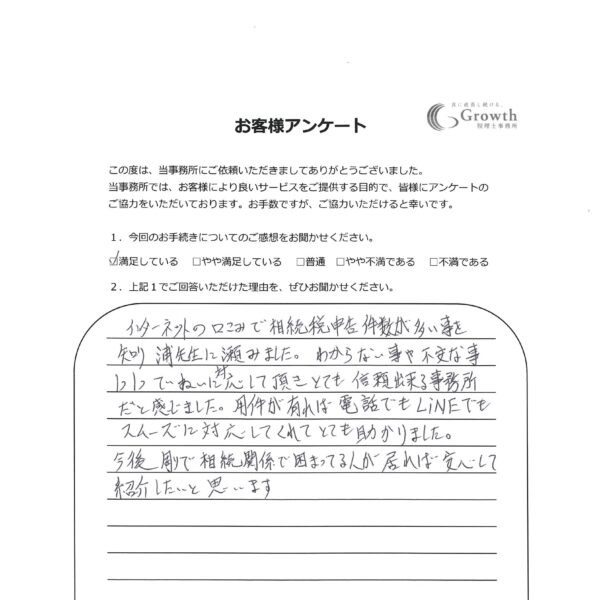 共に成長し続ける。
Growth
税理士事務所
お客様アンケート
この度は、当事務所にご依頼いただきましてありがとうございました。
当事務所では、お客様により良いサービスをご提供する目的で、皆様にアンケートの
ご協力をいただいております。お手数ですが、ご協力いただけると幸いです。
１．今回のお手続きについてのご感想をお聞かせください。
☑満足している □やや満足している □普通 □やや不満である □不満である
２．上記１でご回答いただけた理由を、ぜひお聞かせください。
インターネットの口こみで相続税申告件数が多い事を
知り 浦先生に頼みました。わからない事や不安な事
ていねいに対応して頂きとても信頼出来る事務所
だと感じました。用件が有れば電話でもLiNEでも
スムーズに対応してくれてとても助かりました。
今後 周りで相続関係で困まってる人が居れば安心して
紹介したいと思います